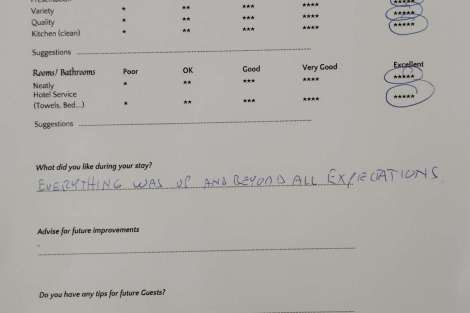 Variety * ** *** **** *****
Quality * ** *** **** *****
Kitchen (clean) * ** *** ****
Suggestions
Rooms/ Bathrooms Poor OK Good Very Good Excellent
Neatly * ** *** **** *****
Hotel Service
(Towels, Bed...) * ** *** **** *****
Suggestions
What did you like during your stay?
EVERYTHING WAS UP AND BEYOND ALL EXPECTATIONS
Advise for future improvements
Do you have any tips for future Guests?